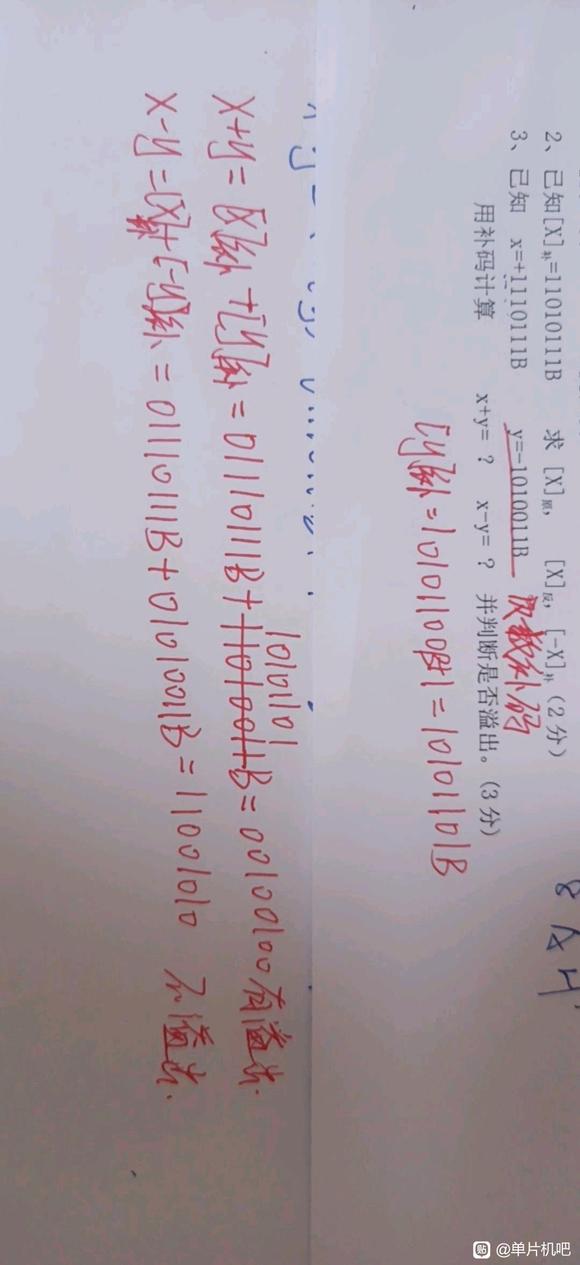 2、已知[X]补=11010111B 求 [X]原, [X]反, [-X]补 (2分)
3、已知 x=+1110111B y=-1010011B 负数补码
用补码计算 x+y= ? x-y= ? 并判断是否溢出。(3分)
[y]补=10101100B+1=10101101B
10101101
X+y= [X]补+[y]补=01110111B+11010011B=00100100有溢出.
X-y=[X]补+[-y]补=01110111B+01010011B=11001010 不溢出.
贴 @单片机吧